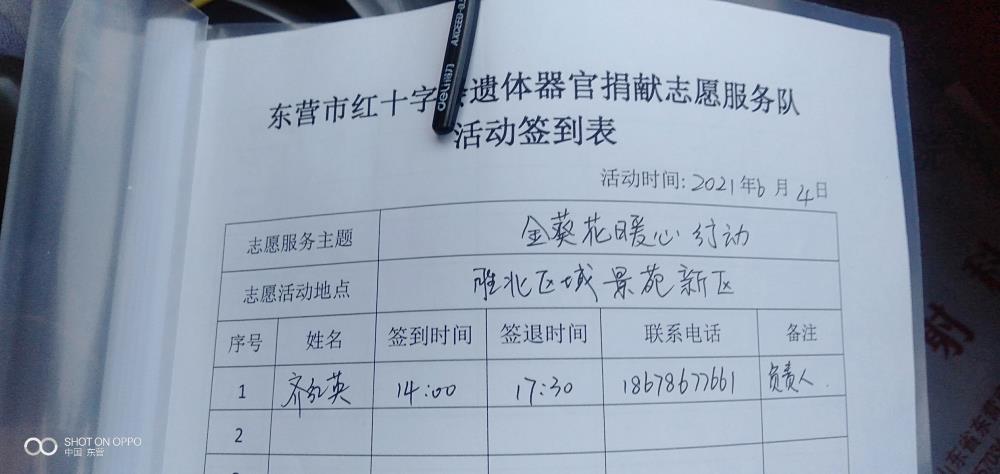 东营市红十字会遗体器官捐献志愿服务队
活动签到表
活动时间: 2021年6月4日
志愿服务主题 金葵花暖心行动
志愿活动地点 胜北区域景苑新区
序号 姓名 签到时间 签退时间 联系电话 备注
1 齐红英 14:00 17:30 18678677661 负责人.
2
deli得力 AXCEED
射
SHOT ON OPPO
中国 东营